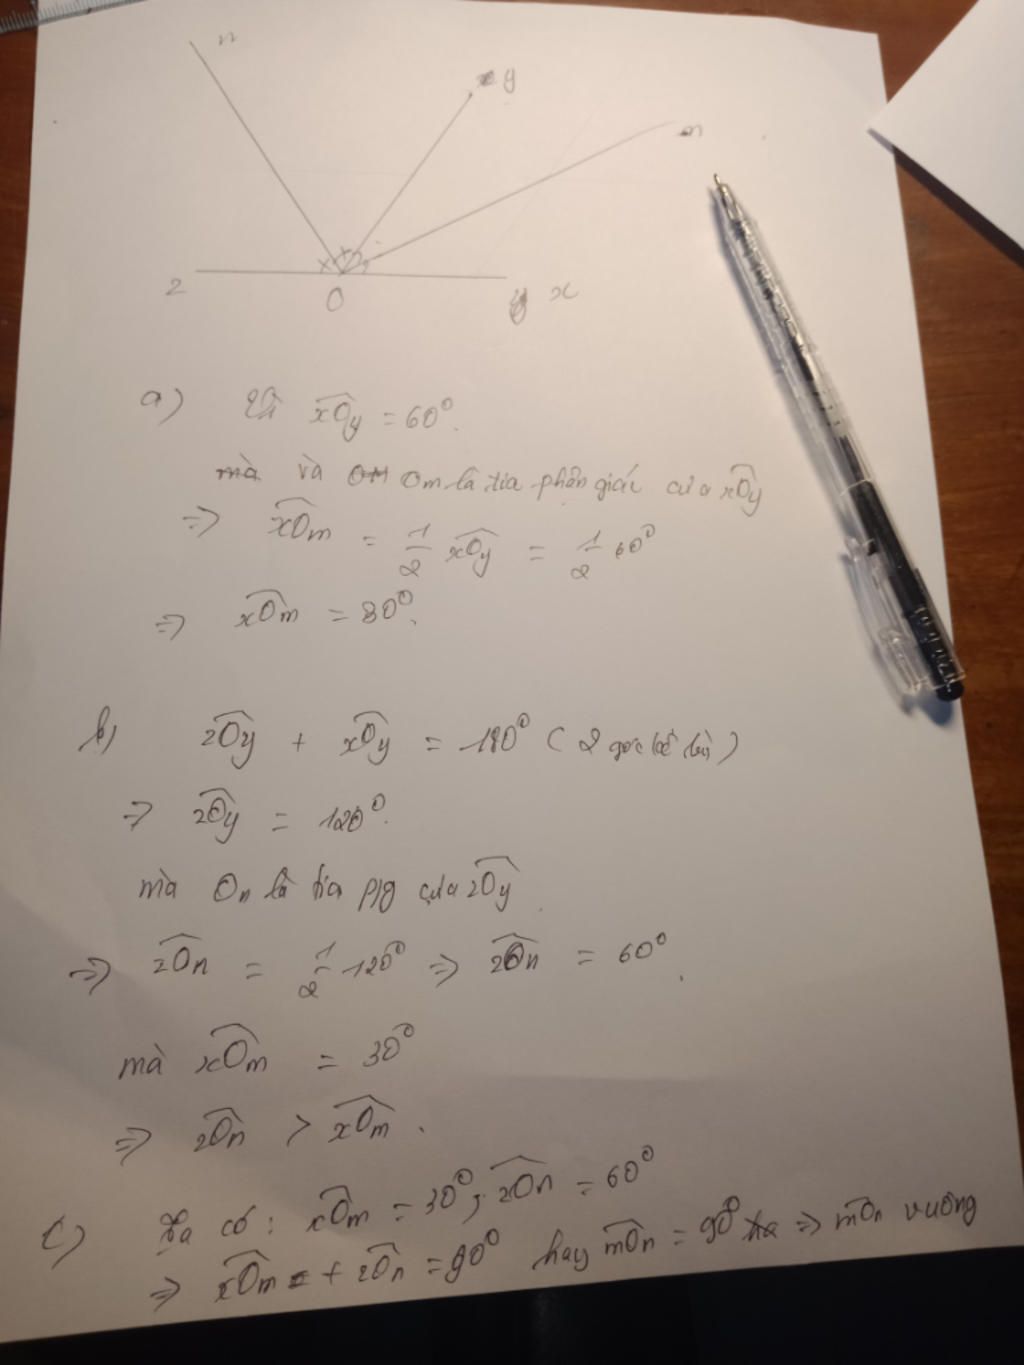 n
y
m
z
O
x
a) Vì xOy = 60°.
và Om là tia phân giác của xOy
=> xOm = 1/2 xOy = 1/2 60°
=> xOm = 30°.
b) zOy + xOy = 180° (2 góc kề bù)
=> zOy = 120°.
mà On là tia p/g của zOy
=> zOn = 1/2 120° => zOn = 60°.
mà xOm = 30°
=> zOn > xOm.
c) Ta có: xOm = 30°; zOn = 60°
=> xOm + zOn = 90° hay mOn = 90° => mOn vuông